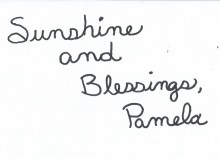 Sunshine
and
Blessings,
Pamela